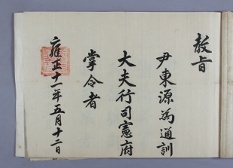 教旨
尹東源爲通訓
大夫行司憲府
掌令者
雍正十一年五月十二日